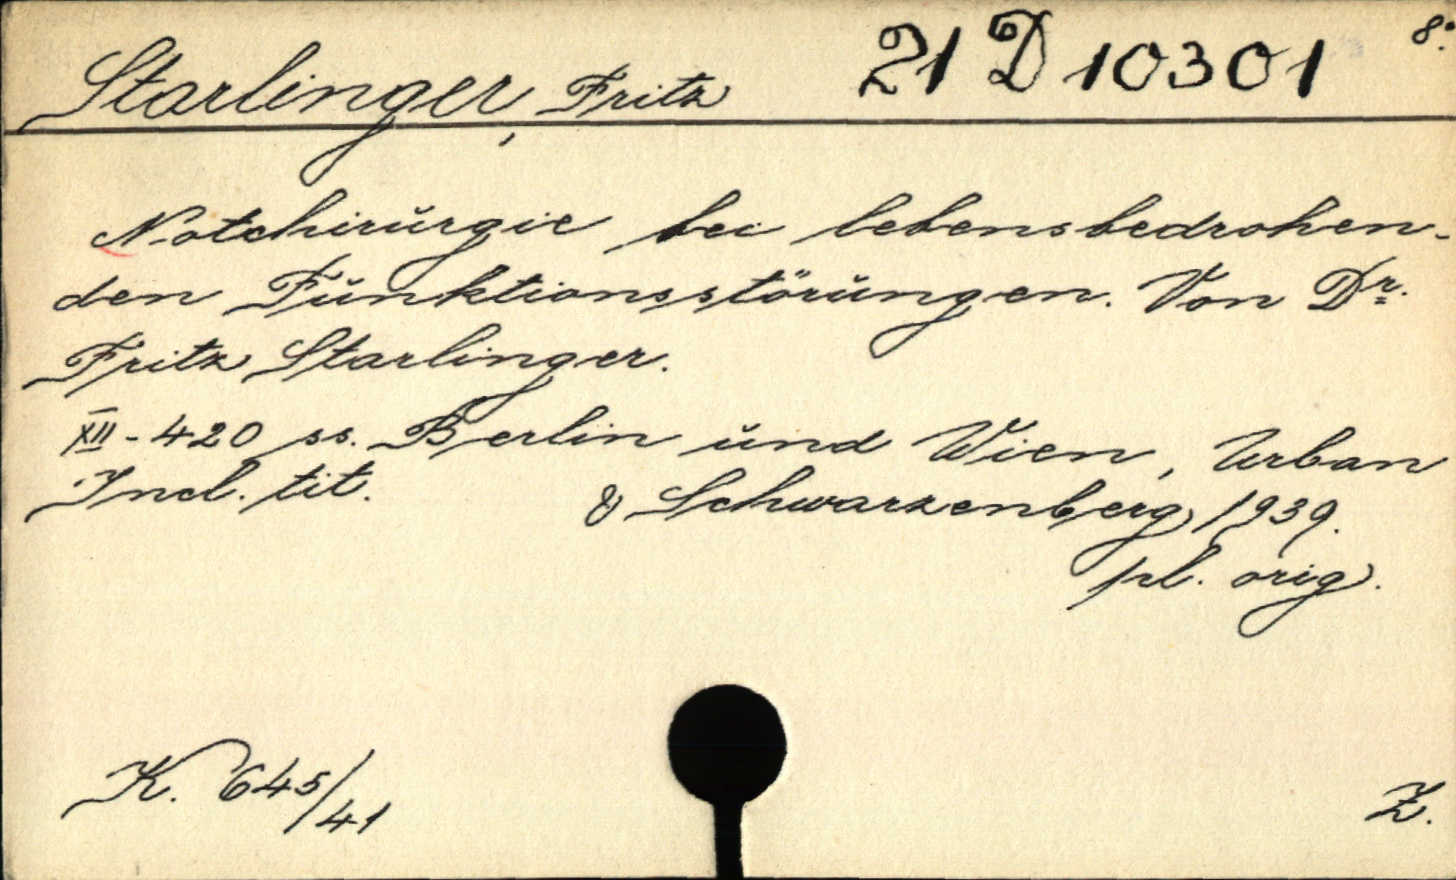 Starlinger, Fritz 21 D 10301 8°.
Notchirŭrgie bei lebensbedrohen-
den Fŭnktionsstörŭngen. Von Dr.
Fritz Starlinger.
XII - 420 ss. Berlin ŭnd Wien, Urban
Incl. tit. & Schwarzenberg, 1939.
pl. orig.
K. 645/41 Z.